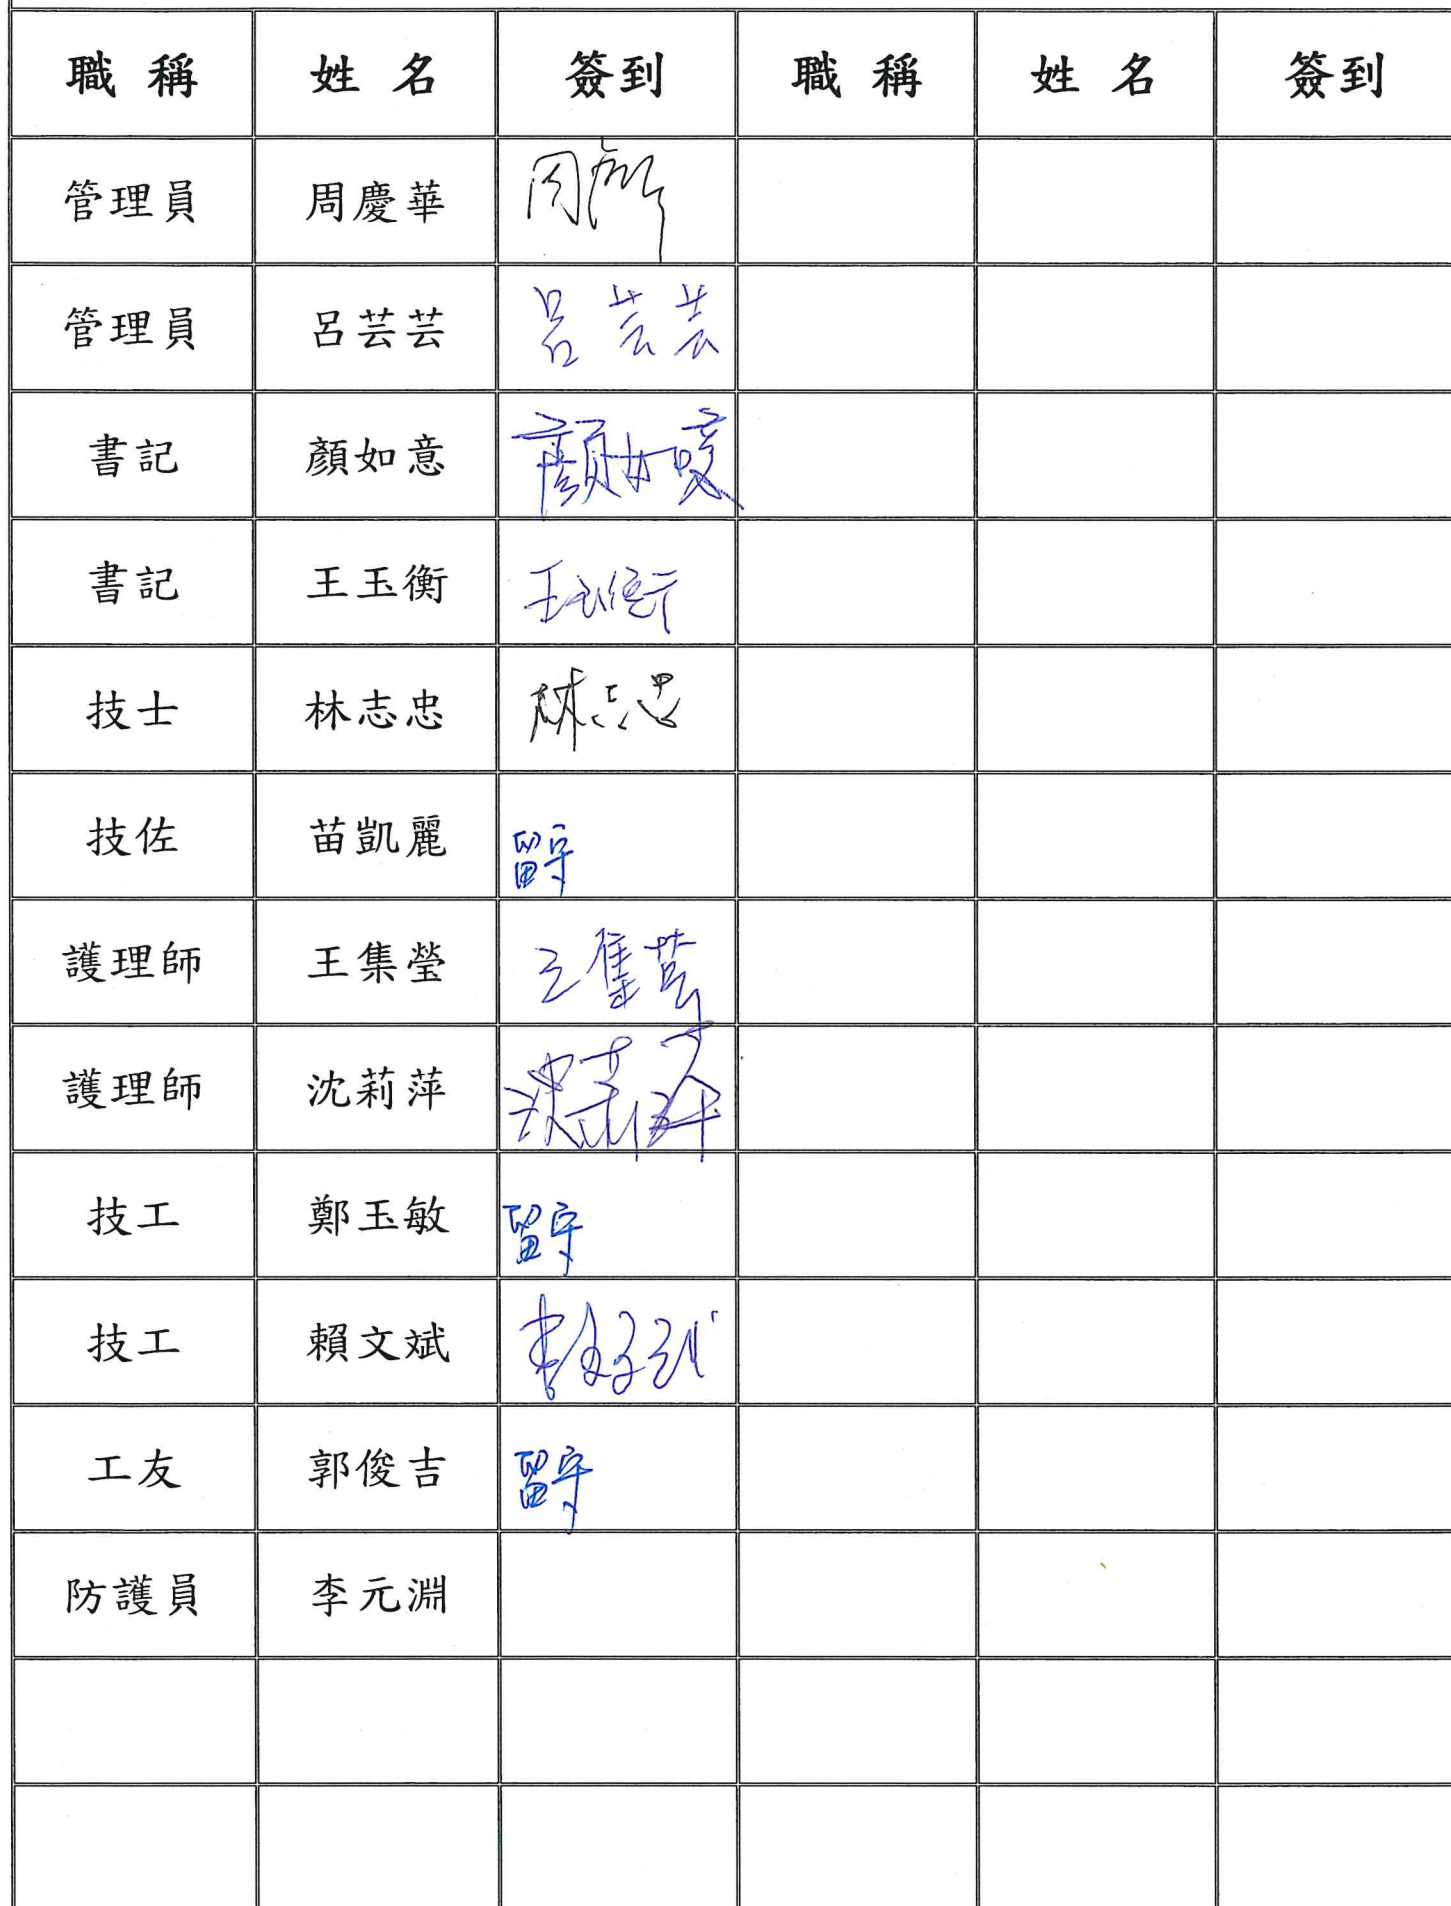 職稱 姓名 簽到 職稱 姓名 簽到
管理員 周慶華 周慶華
管理員 呂芸芸 呂芸芸
書記 顏如意 顏如意
書記 王玉衡 王玉衡
技士 林志忠 林志忠
技佐 苗凱麗 留守
護理師 王集瑩 王集瑩
護理師 沈莉萍 沈莉萍
技工 鄭玉敏 留守
技工 賴文斌
工友 郭俊吉 留守
防護員 李元淵